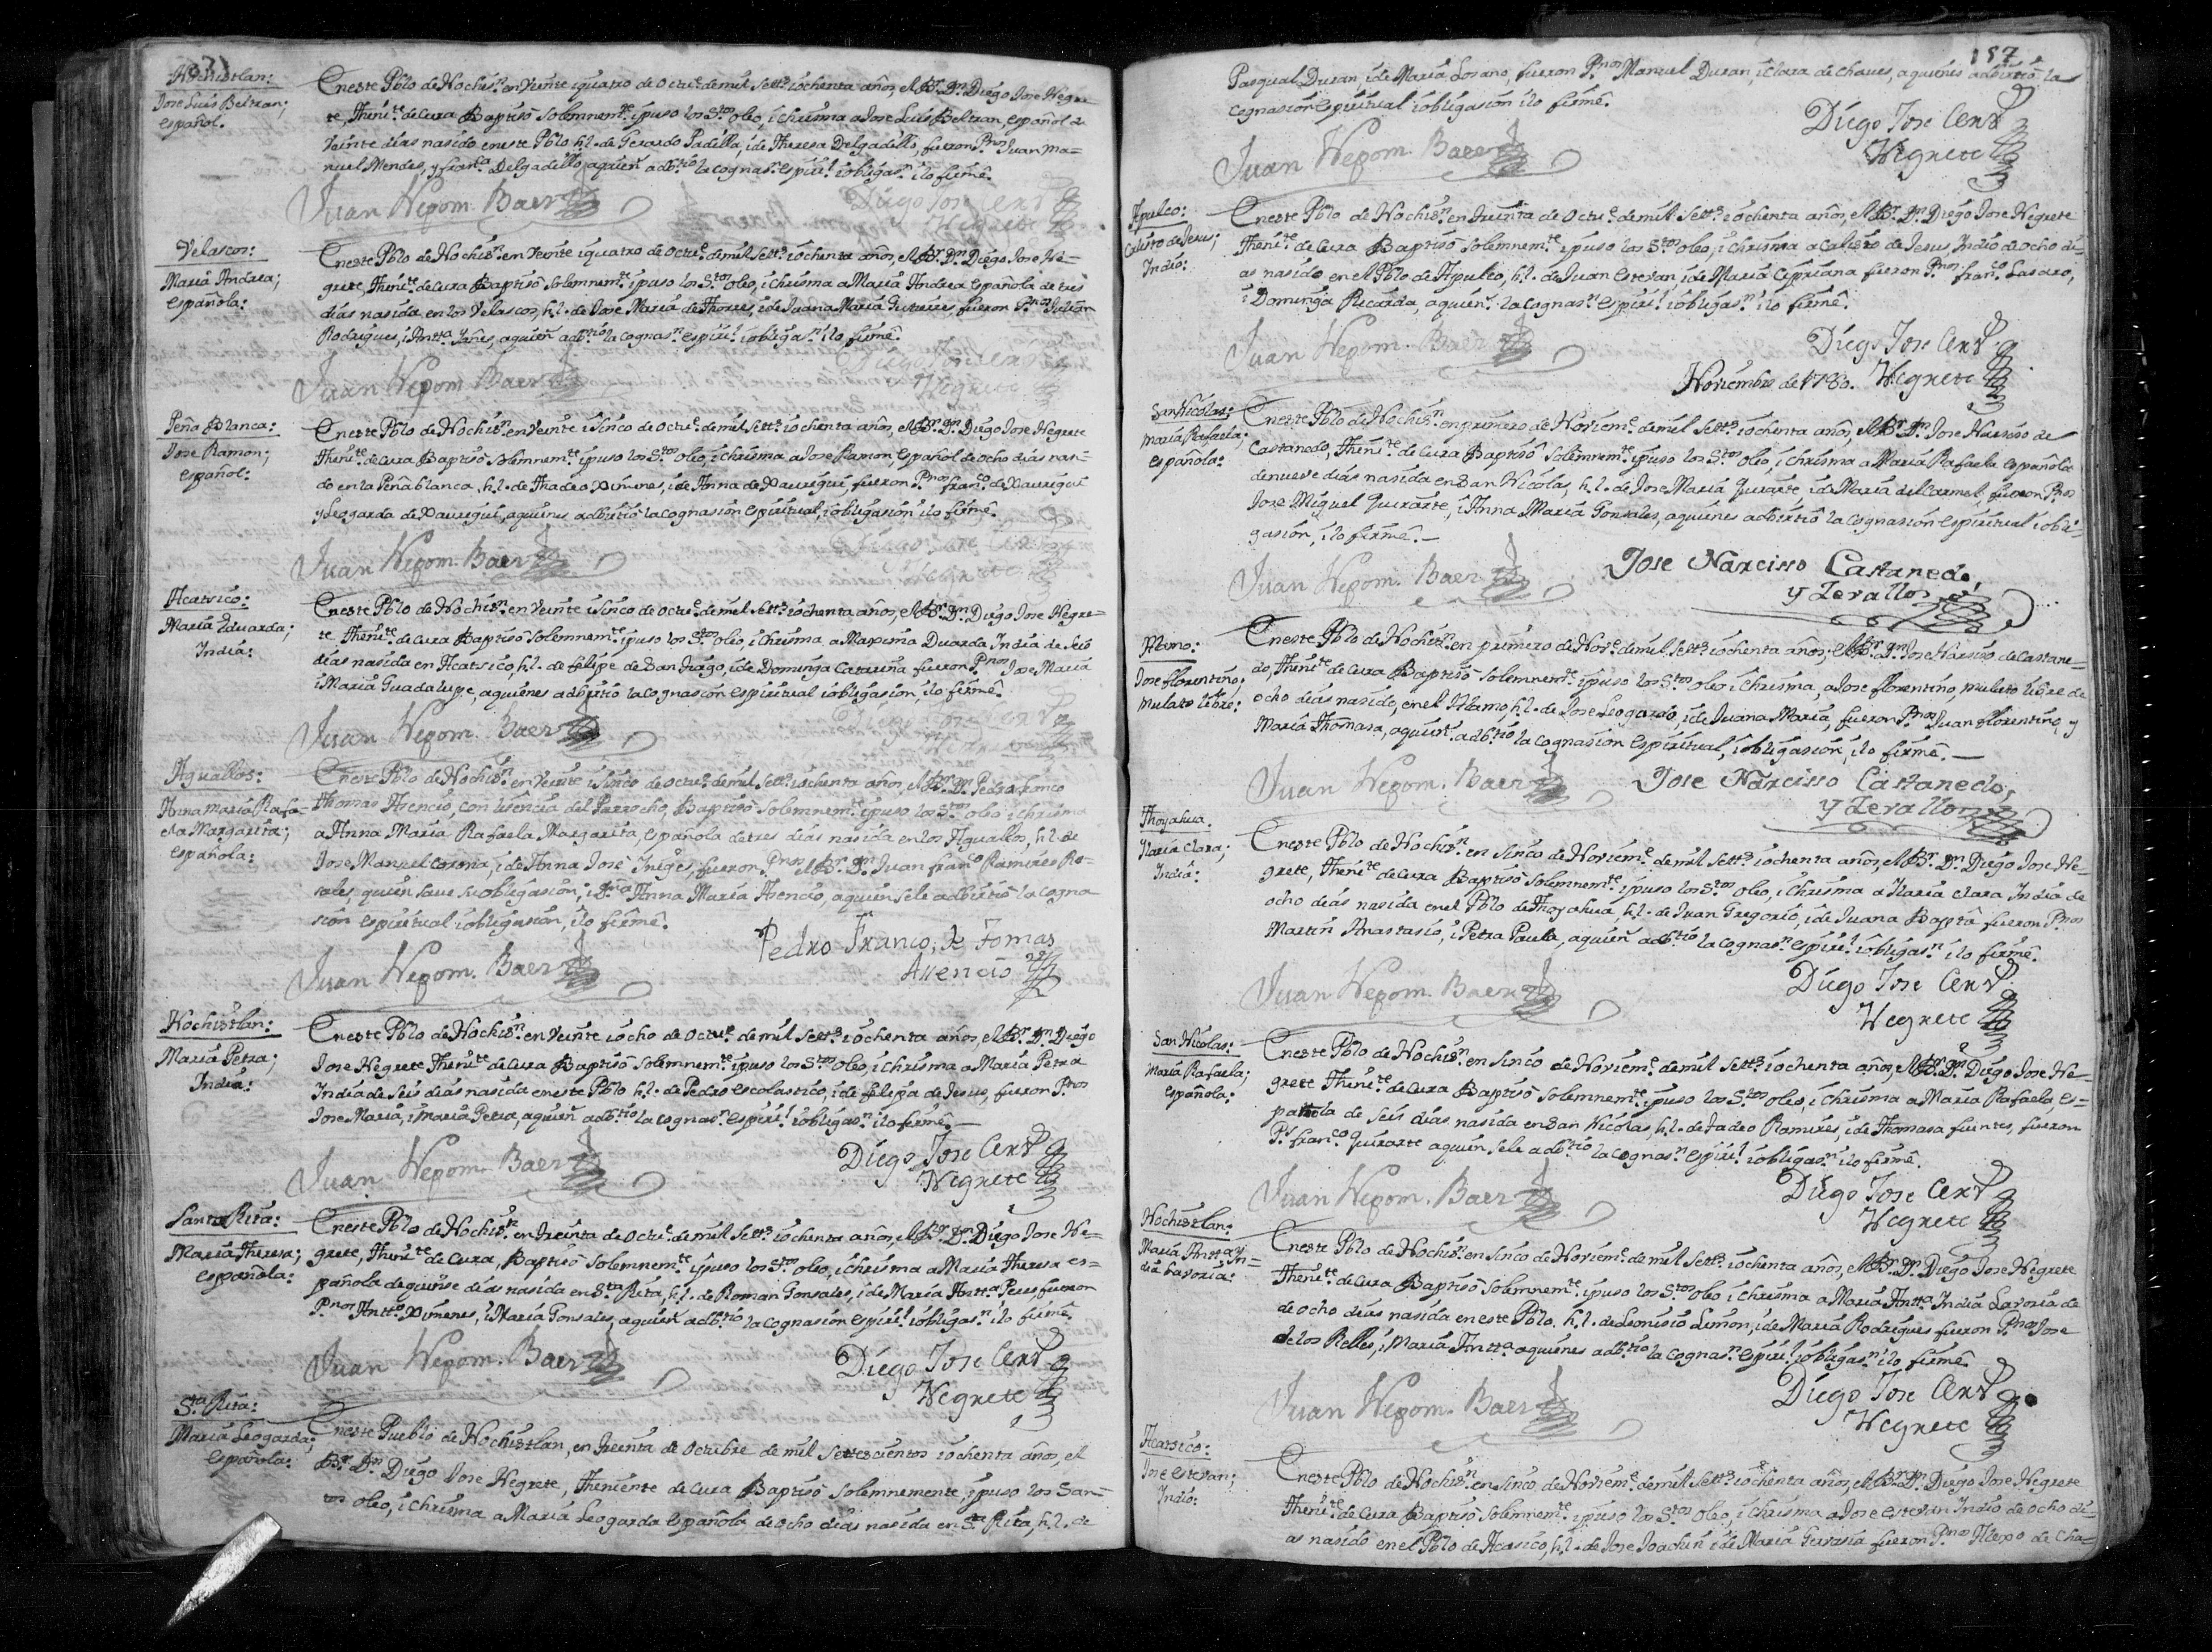 Nochistlan:
Jose Luis Beltran;
español.
Eneste Pblo de Nochisn. en Veinte iquatro de Octue. demil Setts. iochenta años, el Br. Dn. Diego Jose Negre-
te, Thenite. de Cura Baptisó Solemnemte. ipuso los Stos. oleo, i chrisma a Jose Luis Beltran, español de
Veinte dias nasido eneste Pblo h.l. de Gerardo Padilla, ide Theresa Delgadillo, fueron Pnos. Juan Ma=
nuel Mendes, y franca. Delgadillo, aquien adbtio. la cognasn. espirl. iobligasn. ilo firmé.
Juan Nepom. Baer
Diego Jose Cervs.
Negrete
Velascos:
Maria Andrea;
española:
Eneste Pblo de Nochisn. en Veinte iquatro de Octue. demil Setts. iochenta años, el Br. Dn. Diego Jose Ne-
grete, Thenite. de Cura Baptisó Solemnemte. ipuso los Stos. oleo, i chrisma a Maria Andrea española de tres
dias nasida en los Velascos, h.l. de Jose Maria de Thorres, ide Juana Maria Gutierres, fueron Pnos. Julian
Rodrigues, i Antta. Yañes, aquien adbtio. la cognasn. espirl. iobligasn. ilo firmé.
Juan Nepom. Baer
Diego Jose Cervs.
Negrete
Peña Blanca:
Jose Ramon;
español:
Eneste Pblo de Nochisn. en Veinte isinco de Octue. demil Setts. iochenta años, el Br. Dn. Diego Jose Negrete
Thenite. de Cura Baptisó Solemnemte. ipuso los Stos. oleo, i chrisma a Jose Ramon, español de ocho dias nasi-
do en la Peña blanca, h.l. de Thadeo Ximenes, ide Anna de Xauregui, fueron Pnos. franco. de Xauregui
y Leogarda de Xauregui, aquienes adbirtió la cognasion espiritual, iobligasion ilo firmé.
Juan Nepom. Baer
Diego Jose Cervs.
Negrete
Acatsico:
Maria Eduarda;
India:
Eneste Pblo de Nochisn. en Veinte isinco de Octue. demil Setts. iochenta años, el Br. Dn. Diego Jose Negre-
te Thenite. de Cura Baptisó Solemnemte. ipuso los Stos. oleo, i chrisma a Maxima Duarda India de seis
dias nasida en Acatsico, h.l. de felipe de San Tiago, ide Dominga Catarina fueron Pnos. Jose Maria
i Maria Guadalupe, aquienes adbirtió la cognasion espiritual iobligasion, ilo firmé.
Juan Nepom. Baer
Diego Jose Cervs.
Negrete
Aguallos:
Anna Maria Rafa-
ela Margarita;
española:
Eneste Pblo de Nochisn. en Veinte isinco de Octue. demil Setts. iochenta años, el Br. Dn. Pedro franco
thomas Asencio, con lisencia del Parrocho, Baptisó Solemnemte. ipuso los Stos. oleo i chrisma
a Anna Maria Rafaela Margarita, española de tres dias nasida en los Aguallos, h.l. de
Jose Manuel Corona, ide Anna Jose Iñiges, fueron Pnos. el Br. Dn. Juan franco. Ramires Ro-
sales, quien save su obligasion; i Da. Anna Maria Asencio, aquien sele adbirtió la cogna
sion espiritual iobligasion, ilo firmé.
Juan Nepom. Baer
Pedro Franco, de Tomas
Assencio
Nochistlan:
Maria Petra;
India:
Eneste Pblo de Nochisn. en Veinte iocho de Octue. demil Setts. iochenta años, el Br. Dn. Diego
Jose Negrete Thenite. de Cura Baptisó Solemnemte. ipuso los Stos. oleo, i chrisma a Maria Petra
India de seis dias nasida eneste Pblo h.l. de Pedro escolastico, ide felipa de Jesus, fueron Pnos.
Jose Maria, i Maria Petra, aquien adbtio. la cognasn. espirl. iobligasn. ilo firmé.
Juan Nepom. Baer
Diego Jose Cervs.
Negrete
Santa Rita:
Maria Theresa;
española:
Eneste Pblo de Nochisn. en treinta de Octue. demil Setts. iochenta años, el Br. Dn. Diego Jose Ne-
grete, Thenite. de Cura, Baptisó Solemnemte. ipuso los Stos. oleo, i chrisma a Maria Theresa es-
pañola de quinse dias nasida en Sta. Rita, h.l. de Roman Gonsales, ide Maria Antta. Peres fueron
Pnos. Antto. Ximenes, i Maria Gonsales, aquien adbtio. la cognasion espirl. iobligasn. ilo firmé.
Juan Nepom. Baer
Diego Jose Cervs.
Negrete
Sta. Rita:
Maria Leogarda;
española:
Eneste Pueblo de Nochistlan, en treinta de Octubre de mil Settescientos iochenta años, el
Br. Dn. Diego Jose Negrete, Theniente de Cura Baptisó Solemnemente, ipuso los San-
tos oleo, i chrisma a Maria Leogarda española de ocho dias nasida en Sta. Rita, h.l. de
157
Pasqual Duran ide Maria Losano, fueron Pnos. Manuel Duran iClara de Chaves, aquienes adbirtió la
cognasion espiritual iobligasion ilo firmé.
Juan Nepom. Baer
Diego Jose Cervs.
Negrete
Apulco:
Calisto de Jesus;
Indio:
Eneste Pblo de Nochisn. en treinta de Octue. demil Setts. iochenta años, el Br. Dn. Diego Jose Negrete
Thenite. de Cura Baptisó Solemnemte. ipuso los Stos. oleo, i chrisma a Calistro de Jesus, Indio de ocho di-
as nasido en el Pblo de Apulco, h.l. de Juan estevan, ide Maria Cipriana fueron Pnos. franco. Lasaro,
i Dominga Ricarda, aquien. la cognasn. espirl. iobligasn. ilo firmé.
Juan Nepom. Baer
Diego Jose Cervs.
Negrete
Noviembre de 1780.
San Nicolas;
Maria Rafaela;
española:
Eneste Pblo de Nochisn. en primero de Novieme. demil Setts. iochenta años, el Br. Dn. Jose Narsiso de
Castanedo, Thenite. de Cura Baptisó Solemnemte. ipuso los Stos. oleo, i chrisma a Maria Rafaela española
de nueve dias nasida en San Nicolas, h.l. de Jose Maria Quirarte, ide Maria del Carmel, fueron Pnos.
Jose Miguel Quirarte, i Anna Maria Gonsales, aquienes adbirtió la cognasion espiritual iobli-
gasion, ilo firmé.
Juan Nepom. Baer
Jose Narcisso Castanedo,
y Zevallos
Alamo:
Jose florentino;
Mulato libre:
Eneste Pblo de Nochisn. en primero de Nove. demil Setts. iochenta años, el Br. Dn. Jose Narsiso de Castane=
do, Thenite. de Cura Baptisó Solemnemte. ipuso los Stos. oleo i chrisma, a Jose florentino, mulato libre de
ocho dias nasido, en el Alamo, h.l. de Jose Leogardo, ide Juana Maria, fueron Pnos. Juan florentino, y
Maria Thomasa, aquien. adbtio. la cognasion espiritual, iobligasion, ilo firmé.
Juan Nepom. Baer
Jose Narcisso Castanedo,
y Zevallos
Thoyahua.
Maria Clara;
India:
Eneste Pblo de Nochisn. en sinco de Novieme. demil Setts. iochenta años, el Br. Dn. Diego Jose Ne-
grete, Thenite. de Cura Baptisó Solemnemte. ipuso los Stos. oleo, i chrisma a Maria Clara India de
ocho dias nasida en el Pblo de Thoyahua, h.l. de Juan Gregorio, ide Juana Bapta. fueron Pnos.
Martin Anastasio, i Petra Paula, aquien adbtio. la cognasn. espirl. iobligasn. ilo firmé.
Juan Nepom. Baer
Diego Jose Cervs.
Negrete
San Nicolas:
Maria Rafaela;
española:
Eneste Pblo de Nochisn. en sinco de Novieme. demil Setts. iochenta años, el Br. Dn. Diego Jose Ne-
grete Thenite. de Cura Baptisó Solemnemte. ipuso los Stos. oleo, i chrisma a Maria Rafaela, es=
pañola de seis dias nasida en San Nicolas, h.l. de tadeo Ramires, ide Thomasa fuentes, fueron
Ps. franco. Quirarte aquien sele adbtio. la cognasn. espirl. iobligasn. ilo firmé.
Juan Nepom. Baer
Diego Jose Cervs.
Negrete
Nochistlan:
Maria Antta. Yn=
dia Lavoria:
Eneste Pblo de Nochisn. en sinco de Novieme. demil Setts. iochenta años, el Br. Dn. Diego Jose Negrete
Thenite. de Cura Baptisó Solemnemte. ipuso los Stos. oleo i chrisma a Maria Antta. India Lavoria de
de ocho dias nasida en este Pblo, h.l. de Leonisio Limon, ide Maria Rodrigues fueron Pnos. Jose
de los Relles, i Maria Antta. aquienes adbtio. la cognasn. espirl. iobligasn. ilo firmé.
Juan Nepom. Baer
Diego Jose Cervs.
Negrete
Acatsico:
Jose estevan;
Indio:
Eneste Pblo de Nochisn. en sinco, de Novieme. demil Setts. iochenta años, el Br. Dn. Diego Jose Negrete
thenite. de Cura Baptisó Solemnemte. ipuso los Stos. oleo, i chrisma a Jose estevan Indio de ocho di-
as nasido en el Pblo de Acasico, h.l. de Jose Joachin ide Maria Gervasia fueron Pnos. Alexo de Cha=